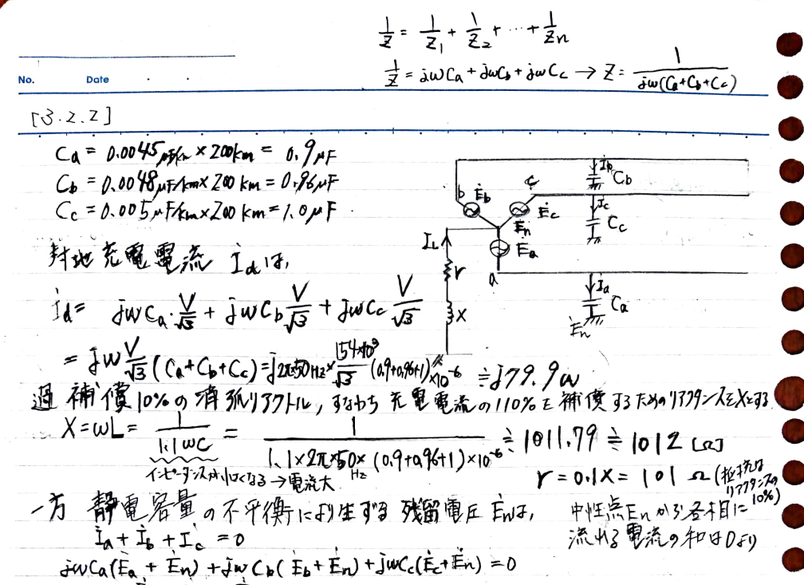 1/Z = 1/Z₁ + 1/Z₂ + ⋯ + 1/Zn
1/Z = jωCa + jωCb + jωCc → Z = 1/(jω(Ca+Cb+Cc))
No. Date
[3.2.2]
Ca = 0.0045μF/km × 200km = 0.9μF
Cb = 0.0048μF/km × 200km = 0.96μF
Cc = 0.005μF/km × 200km = 1.0μF
対地充電電流 İdは,
İd = jωCa・V/√3 + jωCb V/√3 + jωCc V/√3
= jω V/√3 (Ca+Cb+Cc) = j2π×50Hz × 154×10³/√3 (0.9+0.96+1)×10⁻⁶ ≒ j79.9
b Ėb c Ėc Ėn Ėa a
İb Cb
İc Cc
İa Ca
Ėn
IL r X
過補償10%の消弧リアクトル, すなわち充電電流の110%を補償するためのリアクタンスをXとする
X = ωL = 1/(1.1ωC) = 1/(1.1×2π×50Hz×(0.9+0.96+1)×10⁻⁶) ≒ 1011.79 ≒ 1012 [Ω]
インピーダンスが小さくなる → 電流大
r = 0.1X = 101 Ω (抵抗はリアクタンスの10%)
一方 静電容量の不平衡により生ずる残留電圧Ėnは,
中性点Enから各相に
流れる電流の和は0より
İa + İb + İc = 0
jωCa(Ėa + Ėn) + jωCb(Ėb + Ėn) + jωCc(Ėc + Ėn) = 0